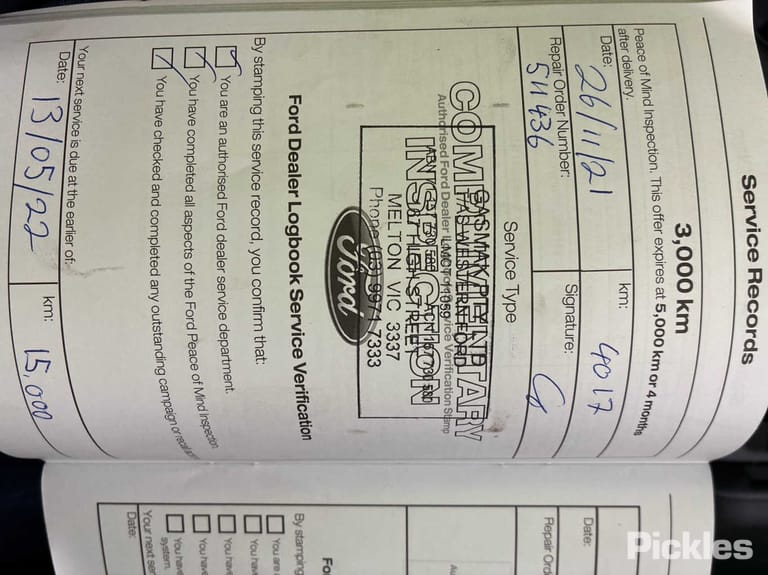 Service Records
3,000 km
Peace of Mind Inspection. This offer expires at 5,000 km or 4 months
after delivery.
Date: 26/11/21
km: 4017
Repair Order Number: 511436
Signature:
Service Type
COMPLIMENTARY
INSPECTION
Authorised Ford Dealer Logbook Service Verification Stamp
T/AS WESTERN FORD
LMCT 11059
HIGH STREET
MELTON VIC 3337
Phone (03) 9971 7333
Ford
Ford Dealer Logbook Service Verification
By stamping this service record, you confirm that:
You are an authorised Ford dealer service department.
You have completed all aspects of the Ford Peace of Mind Inspection
You have checked and completed any outstanding campaign or recall
Your next service is due at the earlier of:
Date: 13/05/22
km: 15,000
Date:
Repair Ord
Au
Fo
By stamping
You are
You have
You have
You have
You have
system.
Your next ser
Date:
Pickles